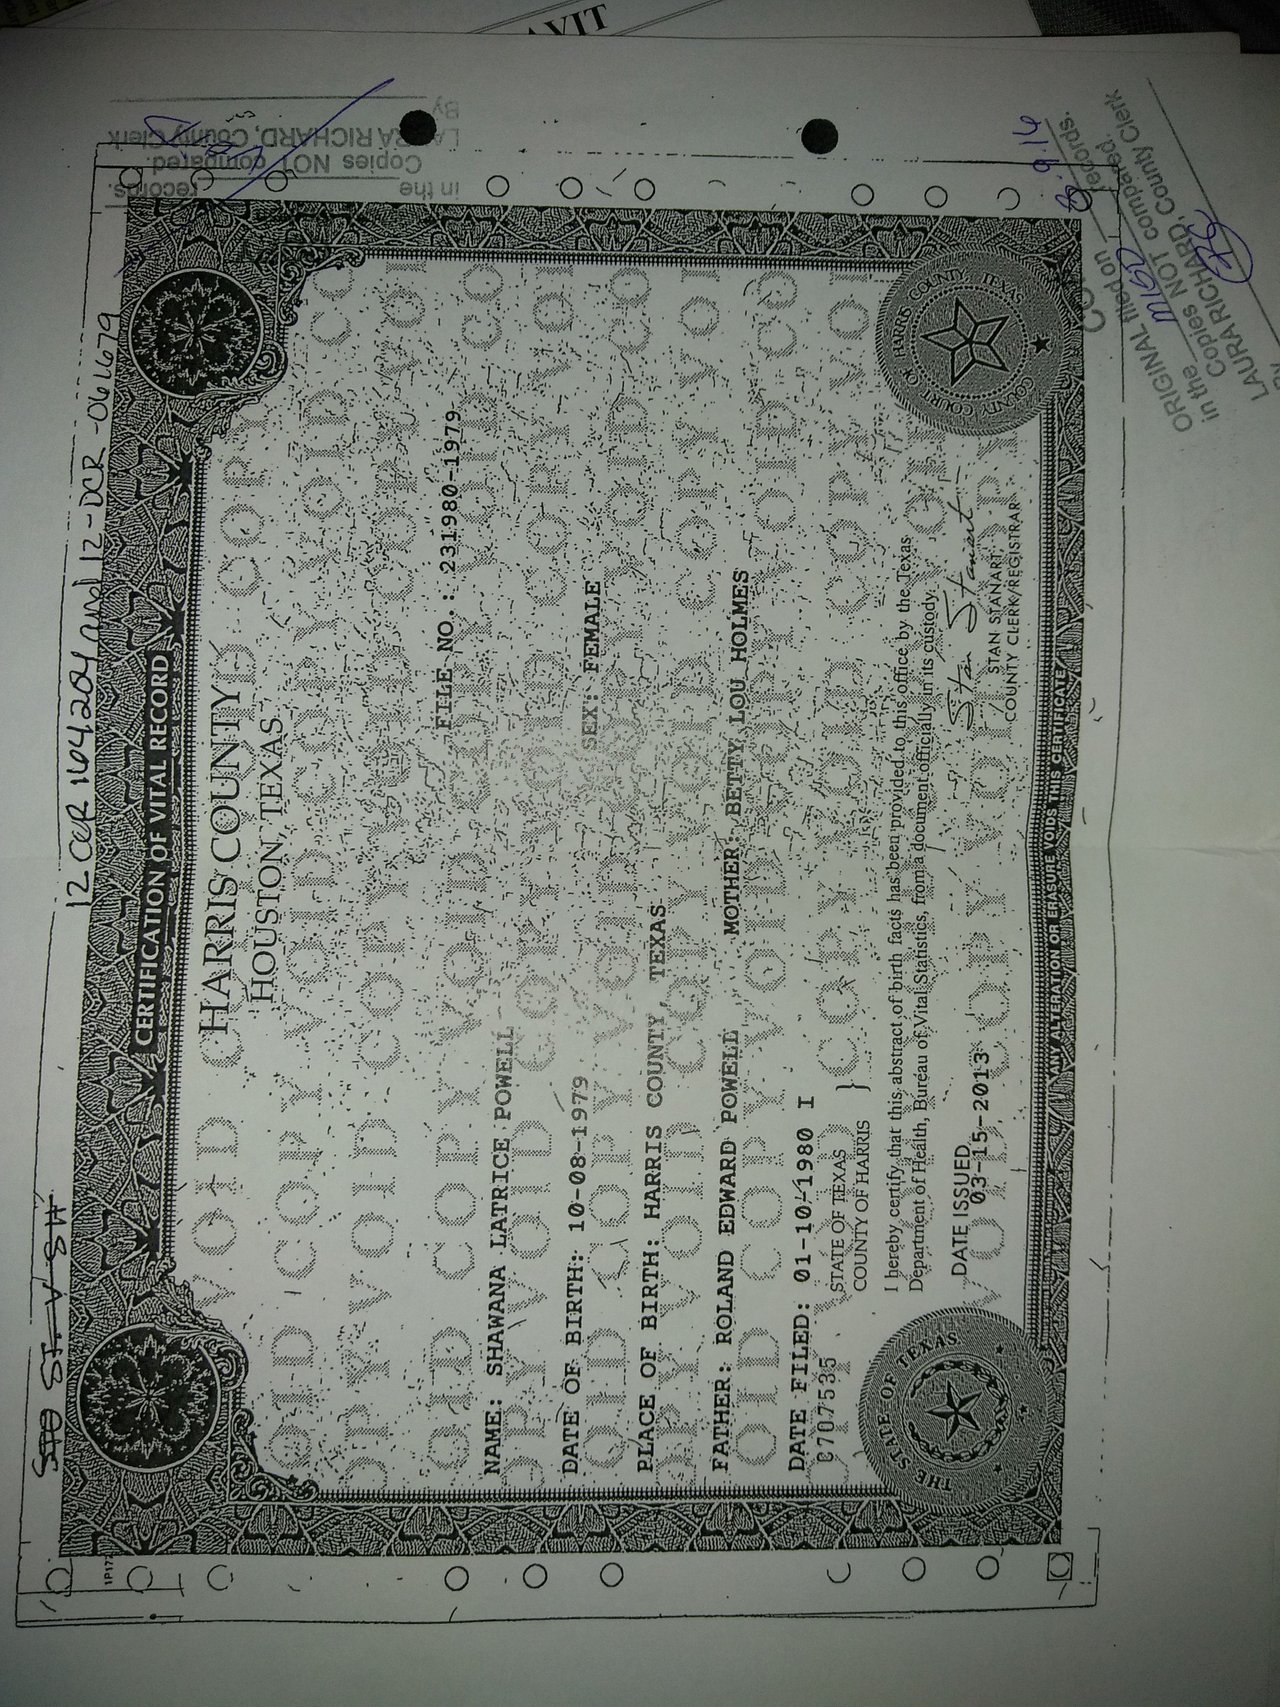 AVIT
12 CCR 164204 and 12-DCR-061679
CERTIFICATION OF VITAL RECORD
HARRIS COUNTY
HOUSTON, TEXAS
FILE NO.: 231980-1979
NAME: SHAWANA LATRICE POWELL
DATE OF BIRTH: 10-08-1979 SEX: FEMALE
PLACE OF BIRTH: HARRIS COUNTY, TEXAS
FATHER: ROLAND EDWARD POWELL MOTHER: BETTY LOU HOLMES
DATE FILED: 01-10-1980 I
C707535
STATE OF TEXAS }
COUNTY OF HARRIS
I hereby certify that this abstract of birth facts has been provided to this office by the Texas
Department of Health, Bureau of Vital Statistics, from a document officially in its custody.
DATE ISSUED
03-15-2013
Stan Stanart
STAN STANART
COUNTY CLERK/REGISTRAR
THE STATE OF TEXAS
HARRIS COUNTY TEXAS
COUNTY COURT
ANY ALTERATION OR ERASURE VOIDS THIS CERTIFICATE
VOID COPY
in the records.
Copies NOT compared.
LAURA RICHARD, County Clerk
By
ORIGINAL filed on
in the Misc records.
Copies NOT compared.
LAURA RICHARD, County Clerk
By